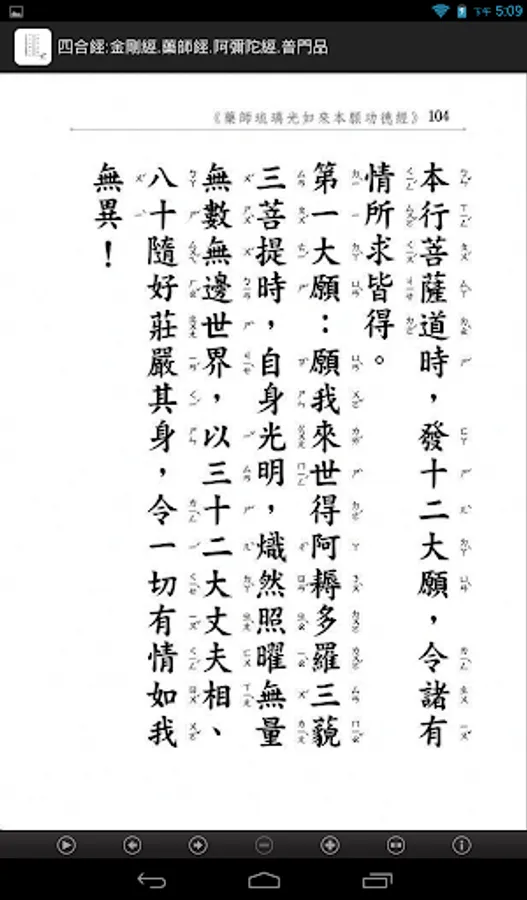 下午 5:09
四合經:金剛經.藥師經.阿彌陀經.普門品
《藥師琉璃光如來本願功德經》 104
本行菩薩道時，發十二大願，令諸有
情所求皆得。
第一大願：願我來世得阿耨多羅三藐
三菩提時，自身光明，熾然照曜無量
無數無邊世界，以三十二大丈夫相、
八十隨好莊嚴其身，令一切有情如我
無異！